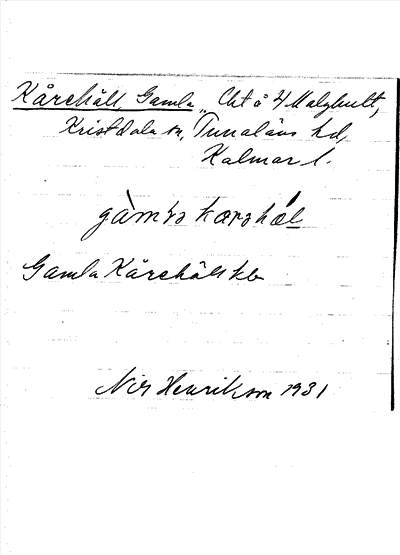 Kårehäll, Gamla, Cht å 4 Malghult,
Kristdala sn, Tunaläns hd,
Kalmar l.
Gamla Kårehäll kb
Nils Henrikson 1931